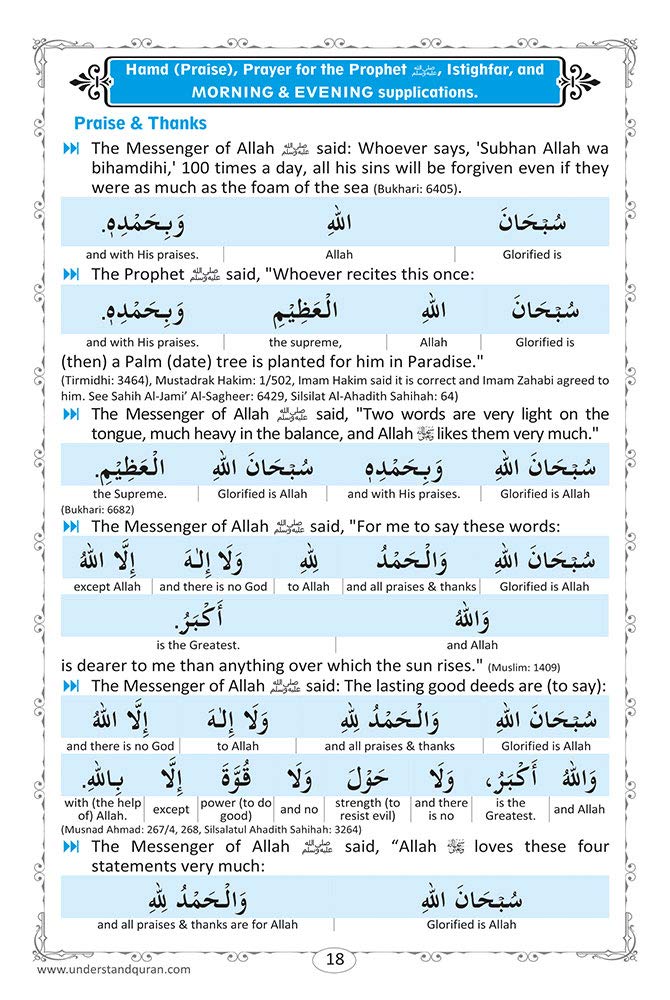 Hamd (Praise), Prayer for the Prophet ﷺ, Istighfar, and
MORNING & EVENING supplications.
Praise & Thanks
The Messenger of Allah ﷺ said: Whoever says, 'Subhan Allah wa
bihamdihi,' 100 times a day, all his sins will be forgiven even if they
were as much as the foam of the sea (Bukhari: 6405).
سُبْحَانَ اللهِ وَبِحَمْدِهٖ.
and with His praises. Allah Glorified is
The Prophet ﷺ said, "Whoever recites this once:
سُبْحَانَ اللهِ الْعَظِيْمِ وَبِحَمْدِهٖ.
and with His praises. the supreme, Allah Glorified is
(then) a Palm (date) tree is planted for him in Paradise."
(Tirmidhi: 3464), Mustadrak Hakim: 1/502, Imam Hakim said it is correct and Imam Zahabi agreed to
him. See Sahih Al-Jami’ Al-Sagheer: 6429, Silsilat Al-Ahadith Sahihah: 64)
The Messenger of Allah ﷺ said, "Two words are very light on the
tongue, much heavy in the balance, and Allah likes them very much."
سُبْحَانَ اللهِ وَبِحَمْدِهٖ سُبْحَانَ اللهِ الْعَظِيْمِ.
the Supreme. Glorified is Allah and with His praises. Glorified is Allah
(Bukhari: 6682)
The Messenger of Allah ﷺ said, "For me to say these words:
سُبْحَانَ اللهِ وَالْحَمْدُ لِلّٰهِ وَلَا إِلٰهَ إِلَّا اللهُ
except Allah and there is no God to Allah and all praises & thanks Glorified is Allah
وَاللهُ أَكْبَرُ.
is the Greatest. and Allah
is dearer to me than anything over which the sun rises." (Muslim: 1409)
The Messenger of Allah ﷺ said: The lasting good deeds are (to say):
سُبْحَانَ اللهِ وَالْحَمْدُ لِلّٰهِ وَلَا إِلٰهَ إِلَّا اللهُ
and there is no God to Allah and all praises & thanks Glorified is Allah
وَاللهُ أَكْبَرُ، وَلَا حَوْلَ وَلَا قُوَّةَ إِلَّا بِاللهِ.
with (the help of) Allah. except power (to do good) and no strength (to resist evil) and there is no is the Greatest. and Allah
(Musnad Ahmad: 267/4, 268, Silsalatul Ahadith Sahihah: 3264)
The Messenger of Allah ﷺ said, “Allah loves these four
statements very much:
سُبْحَانَ اللهِ وَالْحَمْدُ لِلّٰهِ
and all praises & thanks are for Allah Glorified is Allah
18
www.understandquran.com